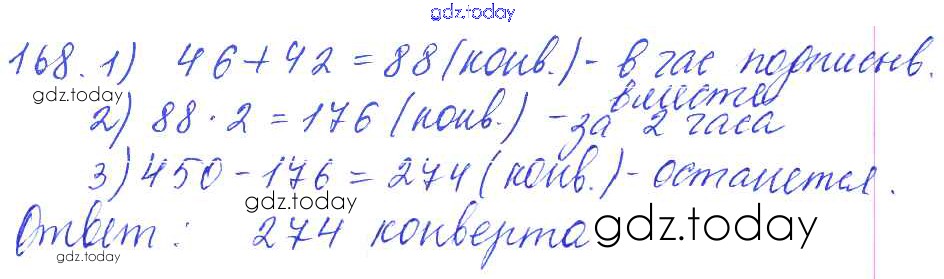 gdz.today
168. 1) 46+42=88(конв.)- в час подписыв.
gdz.today
вместе
2) 88·2=176 (конв.) - за 2 часа
3) 450-176=274(конв.)-останется.
gdz.today
Ответ: 274 конверта gdz.today
gdz.today